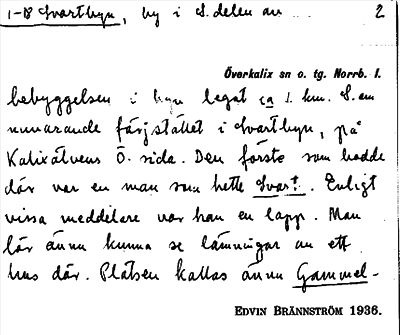 1-18 Svartbyn, by i S. delen av 2
Överkalix sn o. tg. Norrb. l.
bebyggelsen i byn legat ca 1 km. S. om
nuvarande färjstället i Svartbyn, på
Kalixälvens Ö. sida. Den första som bodde
där var en man som hette Svart. Enligt
vissa meddelare var han en lapp. Man
lär ännu kunna se lämningar av ett
hus där. Platsen kallas ännu Gammel-
EDVIN BRÄNNSTRÖM 1936.